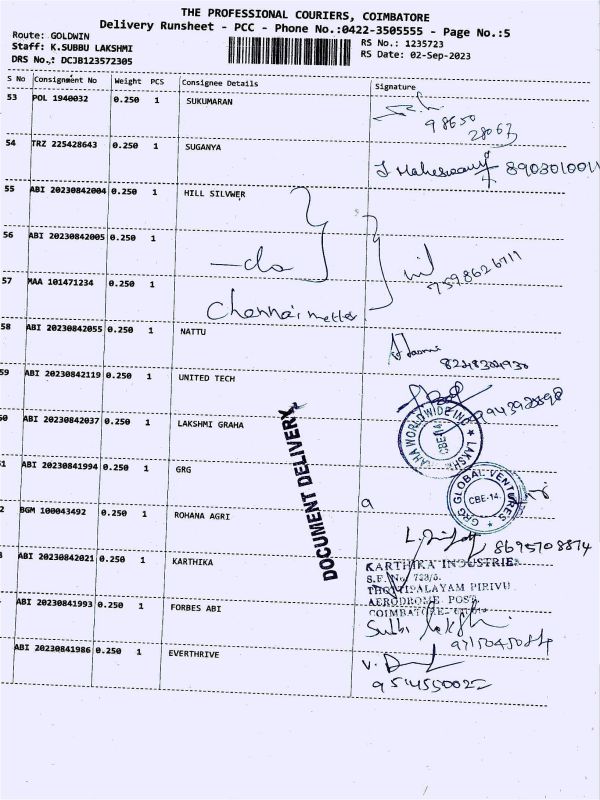 THE PROFESSIONAL COURIERS, COIMBATORE
Delivery Runsheet - PCC - Phone No.:0422-3505555 - Page No.:5
Route: GOLDWIN
Staff: K.SUBBU LAKSHMI
DRS No.: DCJB123572305
RS No.: 1235723
RS Date: 02-Sep-2023
S No Consignment No Weight PCS Consignee Details Signature
53 POL 1940032 0.250 1 SUKUMARAN
98650
28063
54 TRZ 225428643 0.250 1 SUGANYA
J Maheswary 8903010011
55 ABI 20230842004 0.250 1 HILL SILVWER
56 ABI 20230842005 0.250 1
-do
7598626711
57 MAA 101471234 0.250 1
Chennai metter
58 ABI 20230842055 0.250 1 NATTU
8248304930
59 ABI 20230842119 0.250 1 UNITED TECH
0 ABI 20230842037 0.250 1 LAKSHMI GRAHA
AHA WORLDWIDE INC ★ LAKSH
CBE-14.
1 ABI 20230841994 0.250 1 GRG
GRG GLOBAL VENTURES ★
CBE-14.
DOCUMENT DELIVERY
2 BGM 100043492 0.250 1 ROHANA AGRI
8695708874
ABI 20230842021 0.250 1 KARTHIKA
KARTHIKA INDUSTRIES
THOTTIPALAYAM PIRIVU
AERODROME POST
COIMBATORE
ABI 20230841993 0.250 1 FORBES ABI
Subbu lakshmi
9715045084
ABI 20230841986 0.250 1 EVERTHRIVE
9514550022